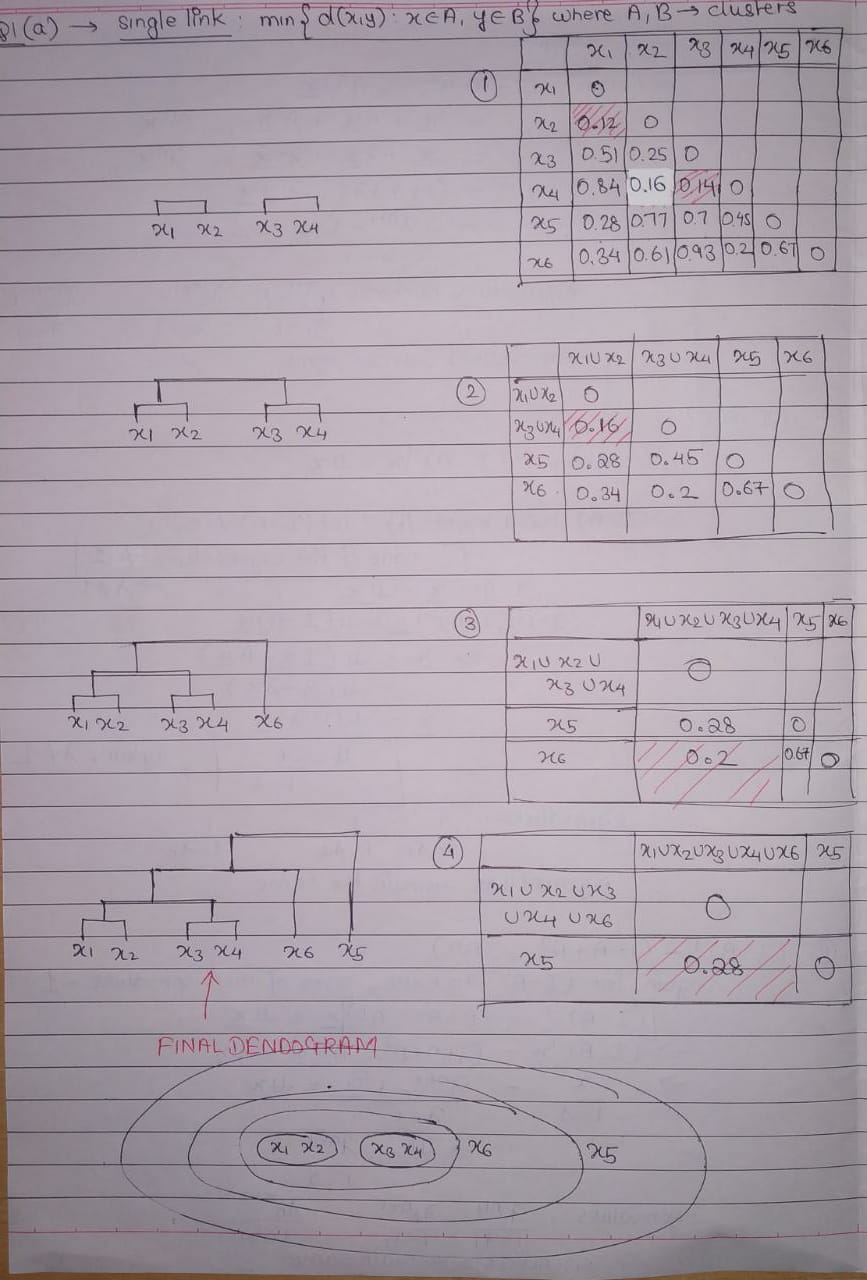 Q1(a) → single link : min{ d(x,y) : x∈A, y∈B} where A, B → clusters
①
x1 x2 x3 x4 x5 x6
x1 0
x2 0.12 0
x3 0.51 0.25 0
x4 0.84 0.16 0.14 0
x5 0.28 0.77 0.7 0.45 0
x6 0.34 0.61 0.93 0.2 0.67 0
x1 x2 x3 x4
②
x1∪x2 x3∪x4 x5 x6
x1∪x2 0
x3∪x4 0.16 0
x5 0.28 0.45 0
x6 0.34 0.2 0.67 0
x1 x2 x3 x4
③
x1∪x2∪x3∪x4 x5 x6
x1∪x2∪
x3∪x4 0
x5 0.28 0
x6 0.2 0.67 0
x1 x2 x3 x4 x6
④
x1∪x2∪x3∪x4∪x6 x5
x1∪x2∪x3
∪x4∪x6 0
x5 0.28 0
x1 x2 x3 x4 x6 x5
FINAL DENDOGRAM
x1 x2 x3 x4 x6 x5